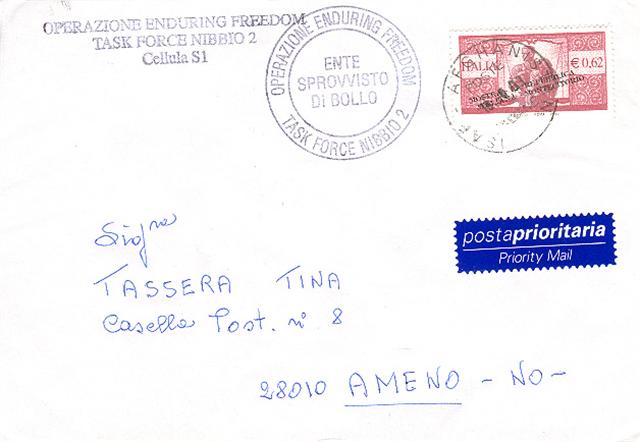 OPERAZIONE ENDURING FREEDOM
TASK FORCE NIBBIO 2
Cellula S1
OPERAZIONE ENDURING FREEDOM
ENTE
SPROVVISTO
DI BOLLO
TASK FORCE NIBBIO 2
ITALIA € 0,62
ISAF - AFGHANISTAN
postaprioritaria
Priority Mail
Sig.ra
TASSERA TINA
Casella Post. n° 8
28010 AMENO - NO -